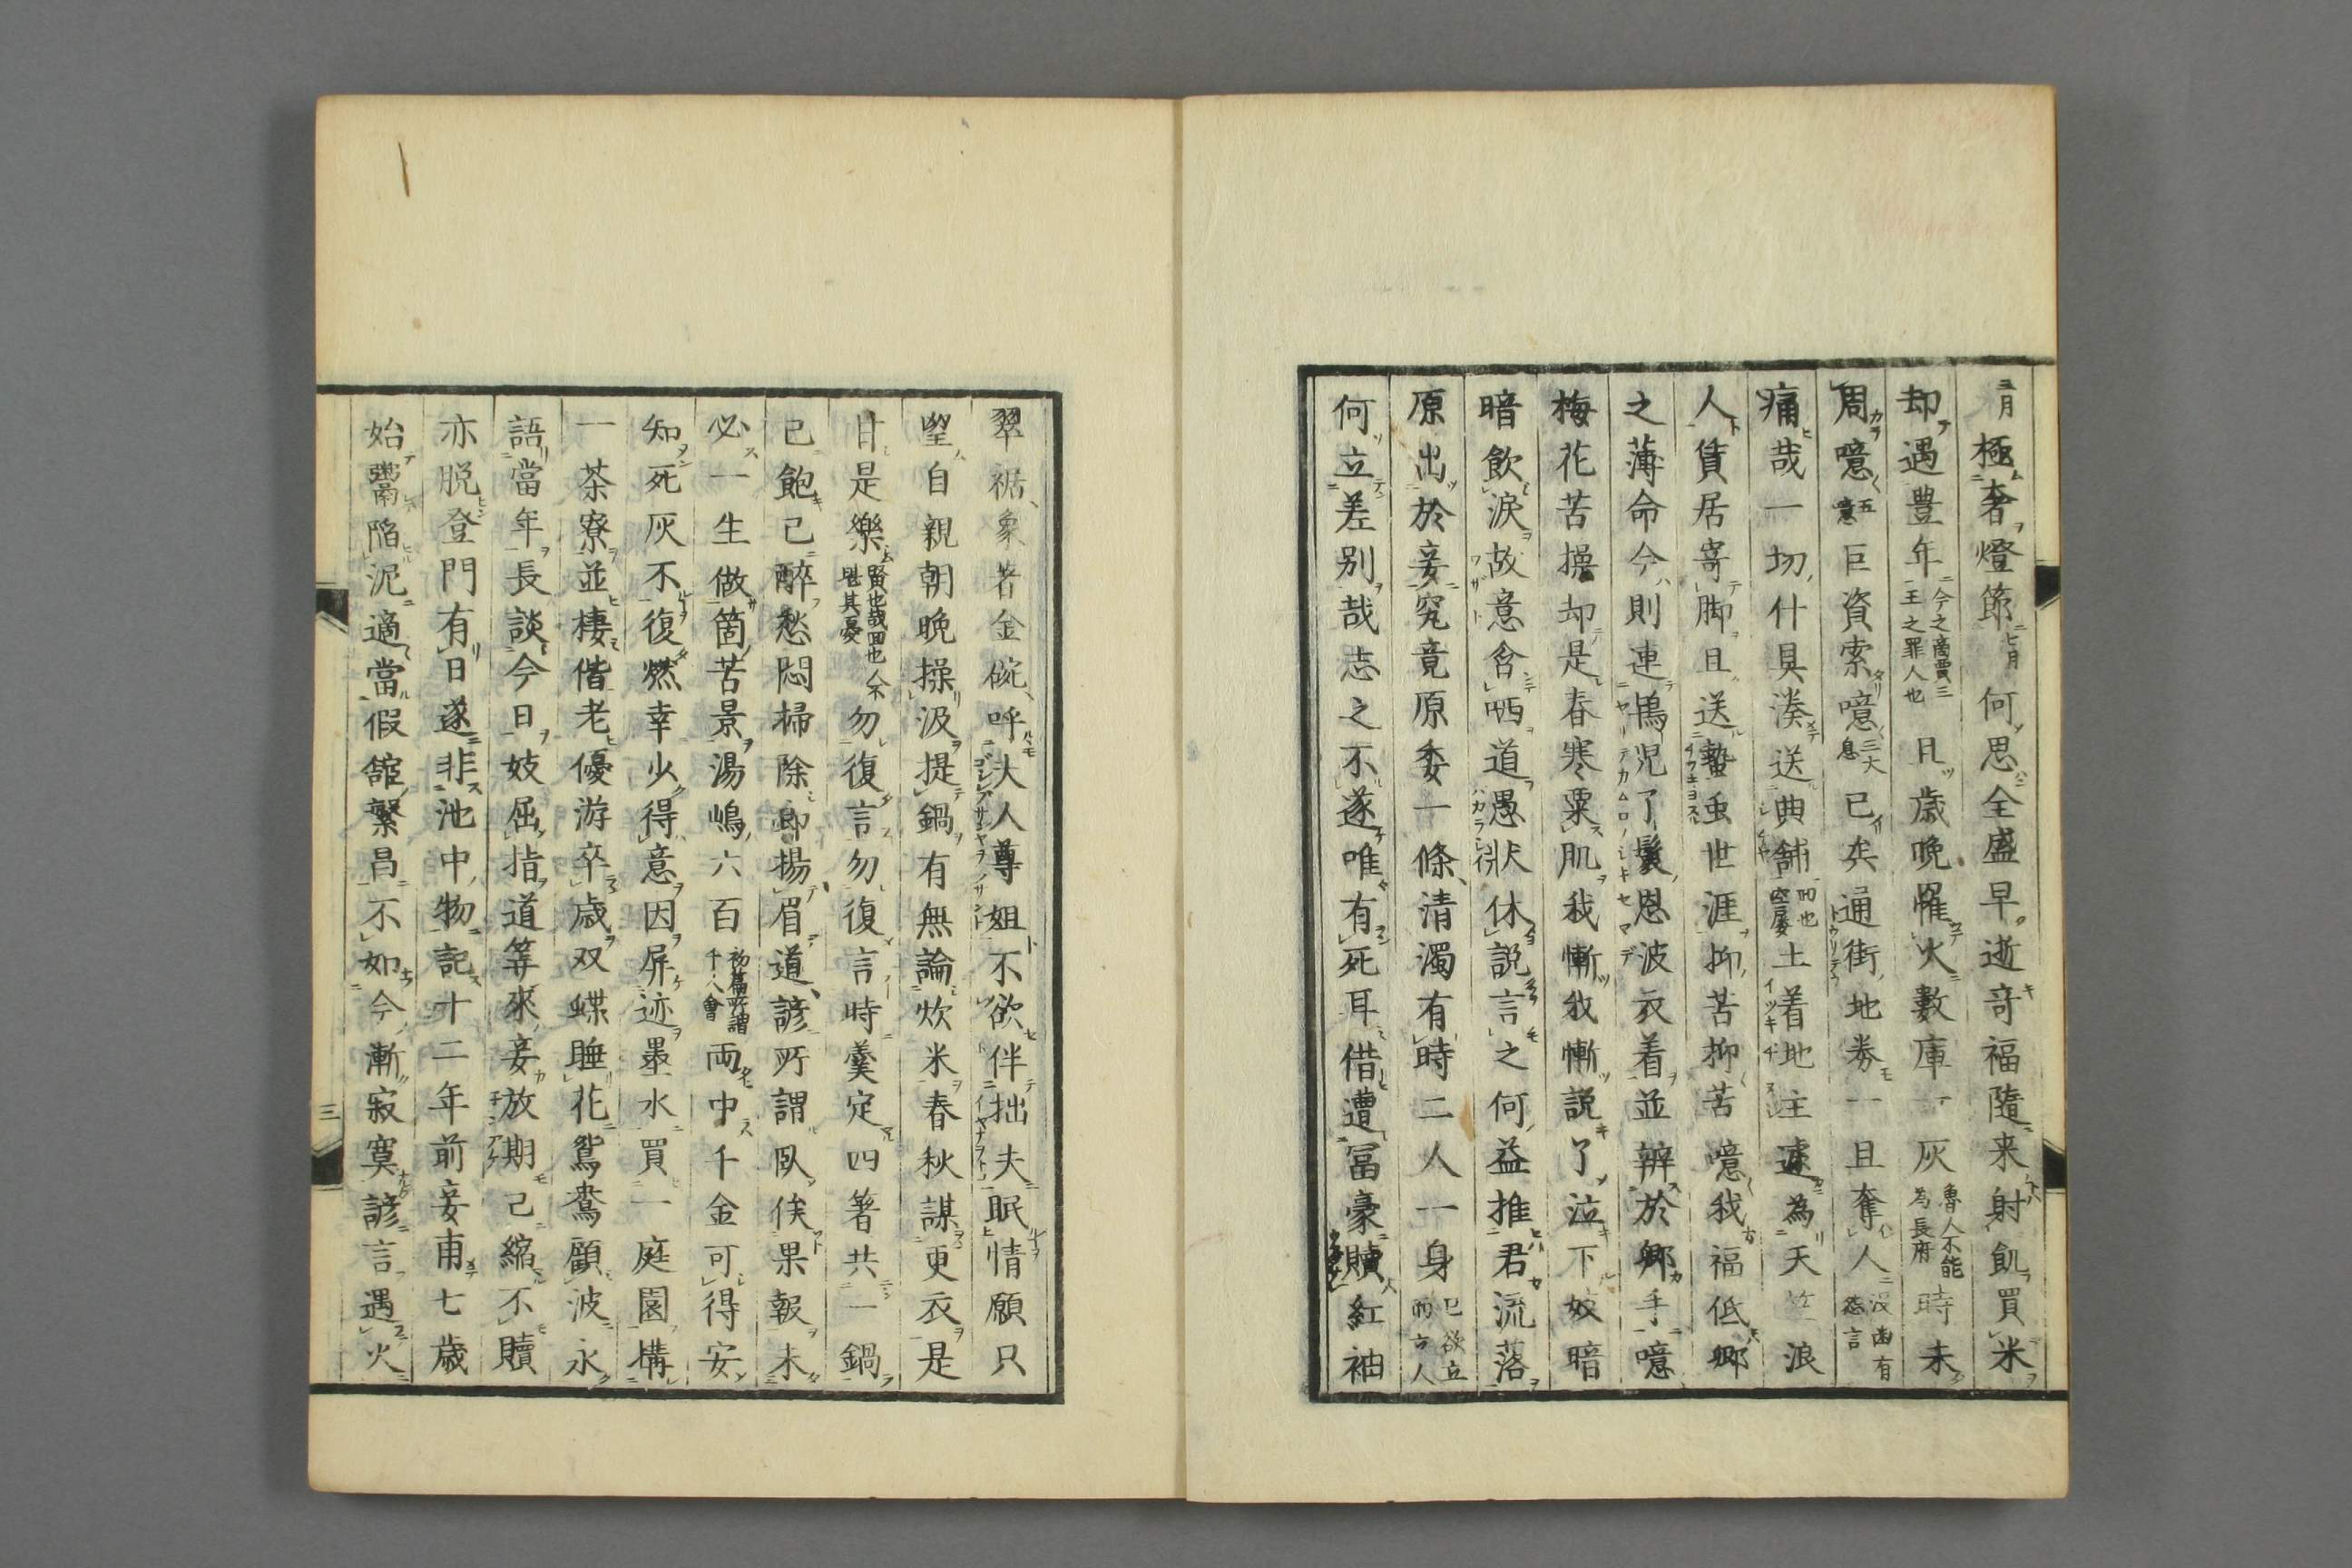 二月極奢燈節七月何思全盛早逝奇福隨来射飢買米
却遇豊年今之商賈三王之罪人也且歳晩罹火數庫一灰魯人不能為長府時未
周噫五噫巨資索噫三大息已矣通街地券一旦奪人没歯有怨言
痛哉一切什具湊送典舗而也屡空土着地主遽為天竺浪
人賃居寄脚且送蟄虫世涯抑苦抑苦噫我福低郷
之薄命今則連鴇児了鬟恩波衣着並辨於郷手噫
梅花苦操却是春寒粟肌我慚我慚説了泣下妓暗
暗飲涙故意含哂道愚状休説言之何益推君流落
原出於妾究竟原委一條清濁有時二人一身已欲立而立人
何立差別哉志之不遂唯有死耳借遭冨豪贖紅袖
翠裾象著金碗呼大人尊姐不欲伴拙夫眠情願只
望自親朝晩操汲提鍋有無論炊米春秋謀更衣是
甘是樂賢也哉回也人不堪其憂勿復言勿復言時羹定四著共一鍋
已飽已醉愁悶掃除郎揚眉道諺所謂臥俟果報未
必一生做箇苦景湯嶋六百初篇所謂千人會両中千金可得安
知死灰不復燃幸少得意因屏迹墨水買一庭園構
一茶寮並棲偕老優游卒歳双蝶睡花鴛鴦顧波永
語當年長談今日妓屈指道等來妾放期已縮不贖
亦脱登門有日遂非池中物記十二年前妾甫七歳
始鬻陷泥適當假舘繁昌不如今漸寂寞諺言遇火
三